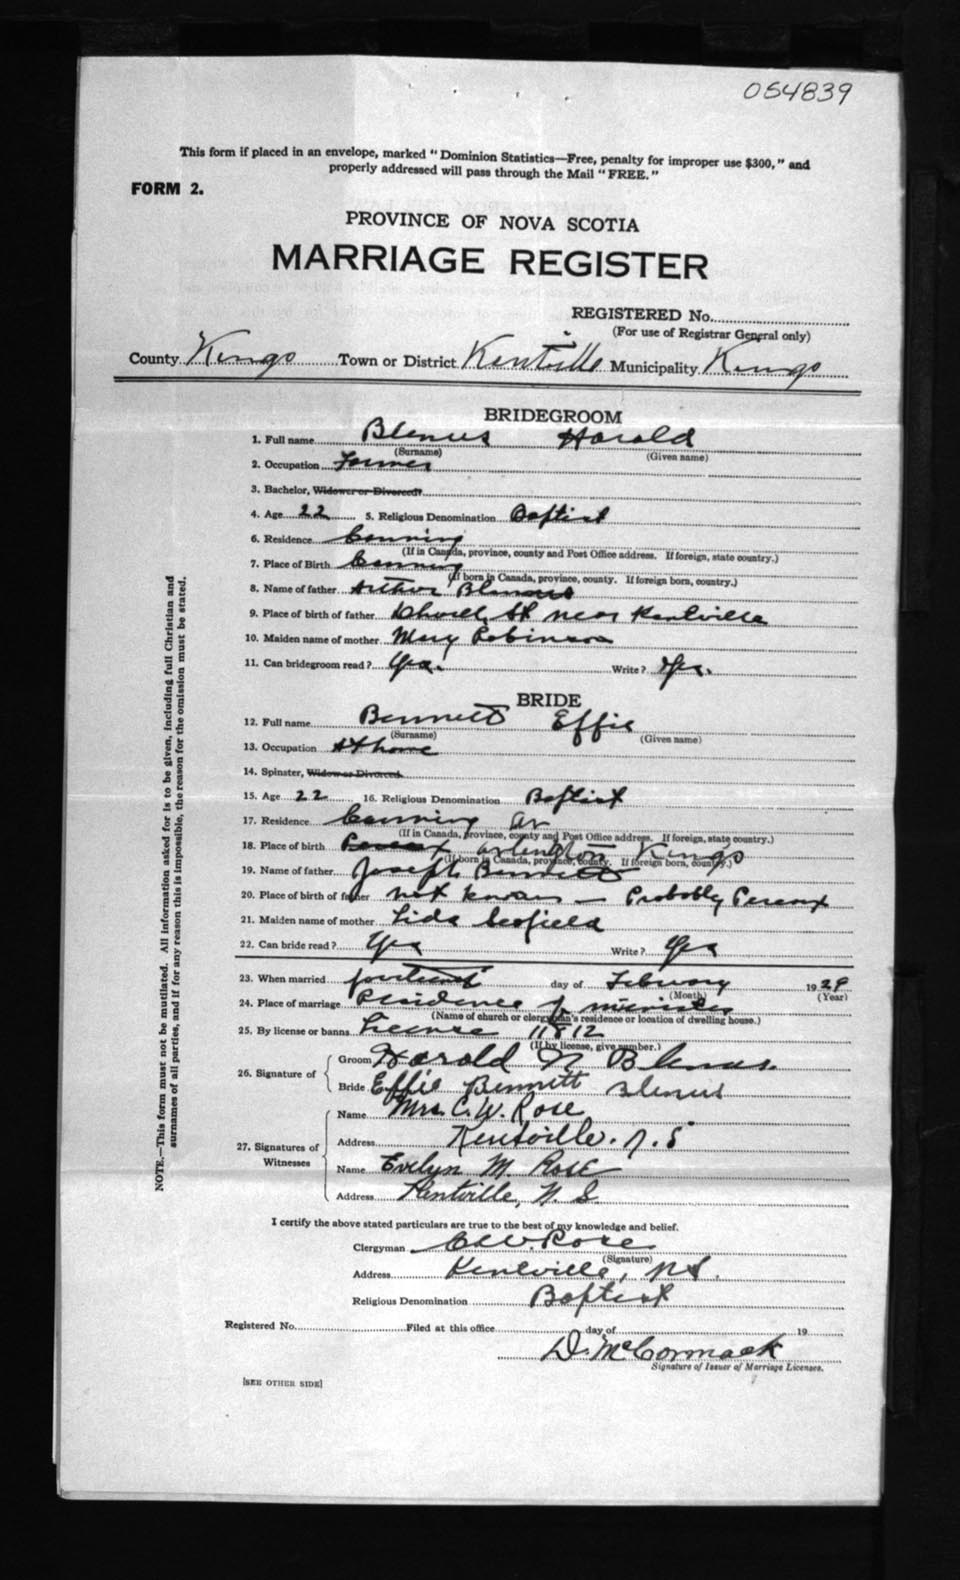 054839
This form if placed in an envelope, marked "Dominion Statistics—Free, penalty for improper use $300," and
properly addressed will pass through the Mail "FREE."
FORM 2.
PROVINCE OF NOVA SCOTIA
MARRIAGE REGISTER
REGISTERED No.
(For use of Registrar General only)
County Kings Town or District Kentville Municipality Kings
BRIDEGROOM
1. Full name Blenus Harold
(Surname) (Given name)
2. Occupation Farmer
3. Bachelor, Widower or Divorced?
4. Age 22 5. Religious Denomination Baptist
6. Residence Canning
(If in Canada, province, county and Post Office address. If foreign, state country.)
7. Place of Birth Canning
(If born in Canada, province, county. If foreign born, country.)
8. Name of father Arthur Blenus
9. Place of birth of father St near Kentville
10. Maiden name of mother Mary Robinson
11. Can bridegroom read? Yes. Write? Yes.
BRIDE
12. Full name Bennett Effie
(Surname) (Given name)
13. Occupation At home
14. Spinster, Widow or Divorced
15. Age 22 16. Religious Denomination Baptist
17. Residence Canning
(If in Canada, province, county and Post Office address. If foreign, state country.)
18. Place of birth Pereaux Arlington Kings
(If born in Canada, province, county. If foreign born, country.)
19. Name of father Joseph Bennett
20. Place of birth of father not known — Probably Pereaux
21. Maiden name of mother Lida Scofield
22. Can bride read? Yes Write? Yes
23. When married fourteenth day of February 1929
(Month) (Year)
24. Place of marriage Residence of minister
(Name of church or clergyman's residence or location of dwelling house.)
25. By license or banns License 11812
(If by license, give number.)
26. Signature of
Groom Harold N Blenus.
Bride Effie Bennett Blenus
27. Signatures of Witnesses
Name Mrs. C. W. Rose
Address Kentville. N. S
Name Evelyn M. Rose
Address Kentville, N. S
I certify the above stated particulars are true to the best of my knowledge and belief.
Clergyman C. W. Rose
(Signature)
Address Kentville, N.S.
Religious Denomination Baptist
Registered No. Filed at this office day of 19
D. McCormack
Signature of Issuer of Marriage Licenses.
[SEE OTHER SIDE]
NOTE.—This form must not be mutilated. All information asked for is to be given, including full Christian and
surnames of all parties, and if for any reason this is impossible, the reason for the omission must be stated.